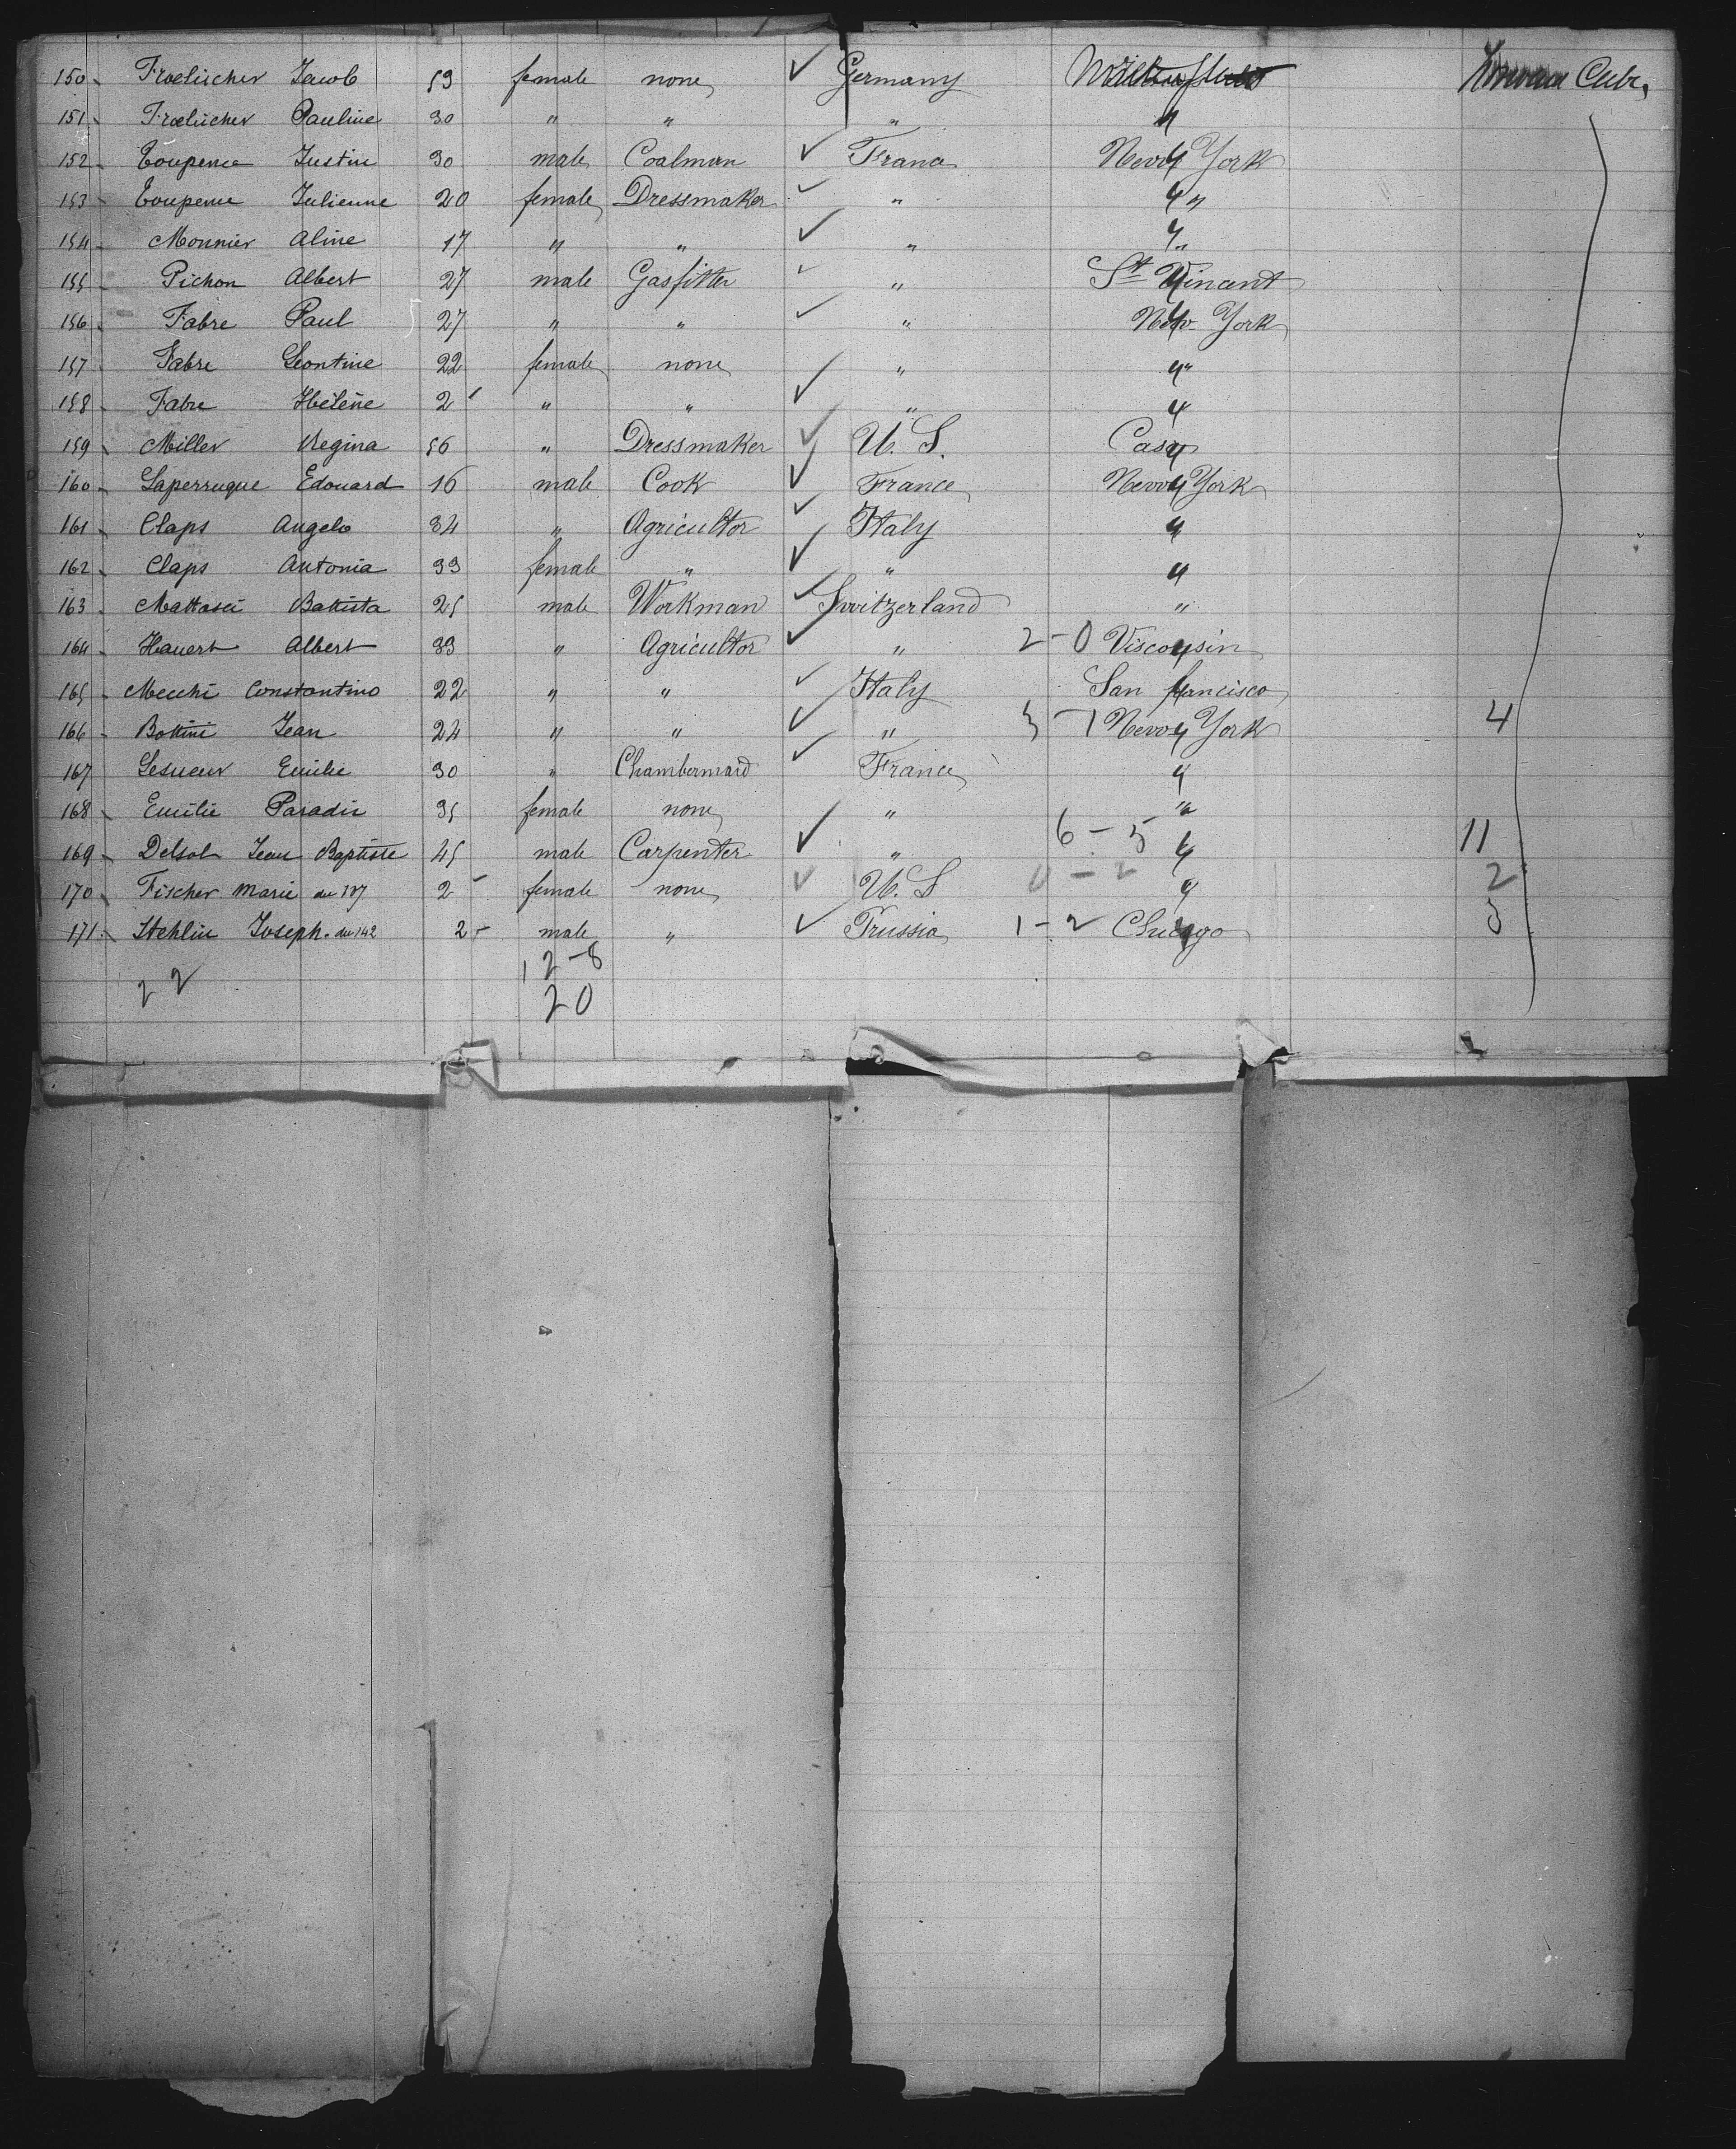 150 Froelicher Jacob 59 female none ✓ Germany Cube,
151 Froelicher Pauline 30 " " " "
152 Toupenne Justin 30 male Coalman ✓ France New York
153 Toupenne Julienne 20 female Dressmaker ✓ " "
154 Monnier Aline 17 " " ✓ " "
155 Pichon Albert 27 male Gasfitter ✓ " St Vincent
156 Fabre Paul 27 " " ✓ " New York
157 Fabre Leontine 22 female none ✓ " "
158 Fabre Hélène 2 " " ✓ " "
159 Miller Regina 56 " Dressmaker ✓ U. S.
160 Laperruque Edouard 16 male Cook ✓ France New York
161 Claps Angelo 34 " Agricultor ✓ Italy "
162 Claps Antonia 33 female " ✓ " "
163 Mattasci Battista 25 male Workman ✓ Switzerland "
164 Hauert Albert 33 " Agricultor ✓ " 2-0 Viscousin
165 Mecchi Constantino 22 " " ✓ Italy San francisco
166 Bottini Jean 24 " " ✓ " 3-1 New York 4
167 Lesueur Emilie 30 " Chambermaid ✓ France "
168 Emilie Paradis 35 female none ✓ " "
169 Delsol Jean Baptiste 45 male Carpenter ✓ " 6-5 " 11
170 Fischer Marie du 137 2 female none ✓ U. S 0-2 " 2
171 Stehlin Joseph. du 142 2 male " ✓ Prussia 1-2 Chicago 3
22 12-8
20